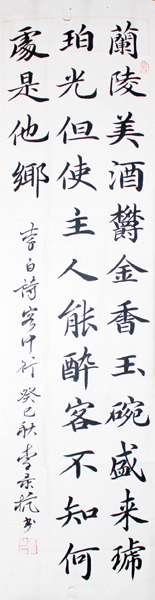 蘭陵美酒欝金香玉碗盛来琥
珀光但使主人能醉客不知何
處是他鄉
李白詩客中行癸巳秋李京杭书